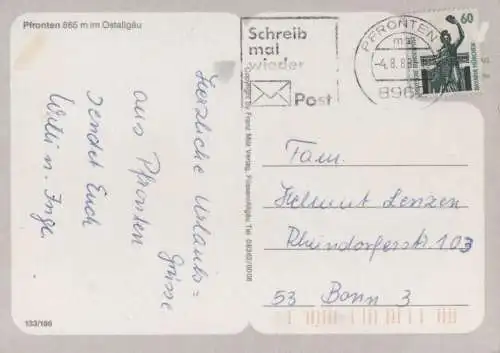 Pfronten 865 m im Ostallgäu
Schreib
mal
wieder
Post
PFRONTEN
-4.8.88
896
60
Herzliche Urlaubs=
grüsse
aus Pfronten
sendet Euch
Willi u. Inge.
Copyright by Franz Milz Verlag, Füssen/Allgäu, Tel. 08362/6008
Fam.
Helmut Lenzen
Rheindorferstr. 103
53 Bonn 3
133/186